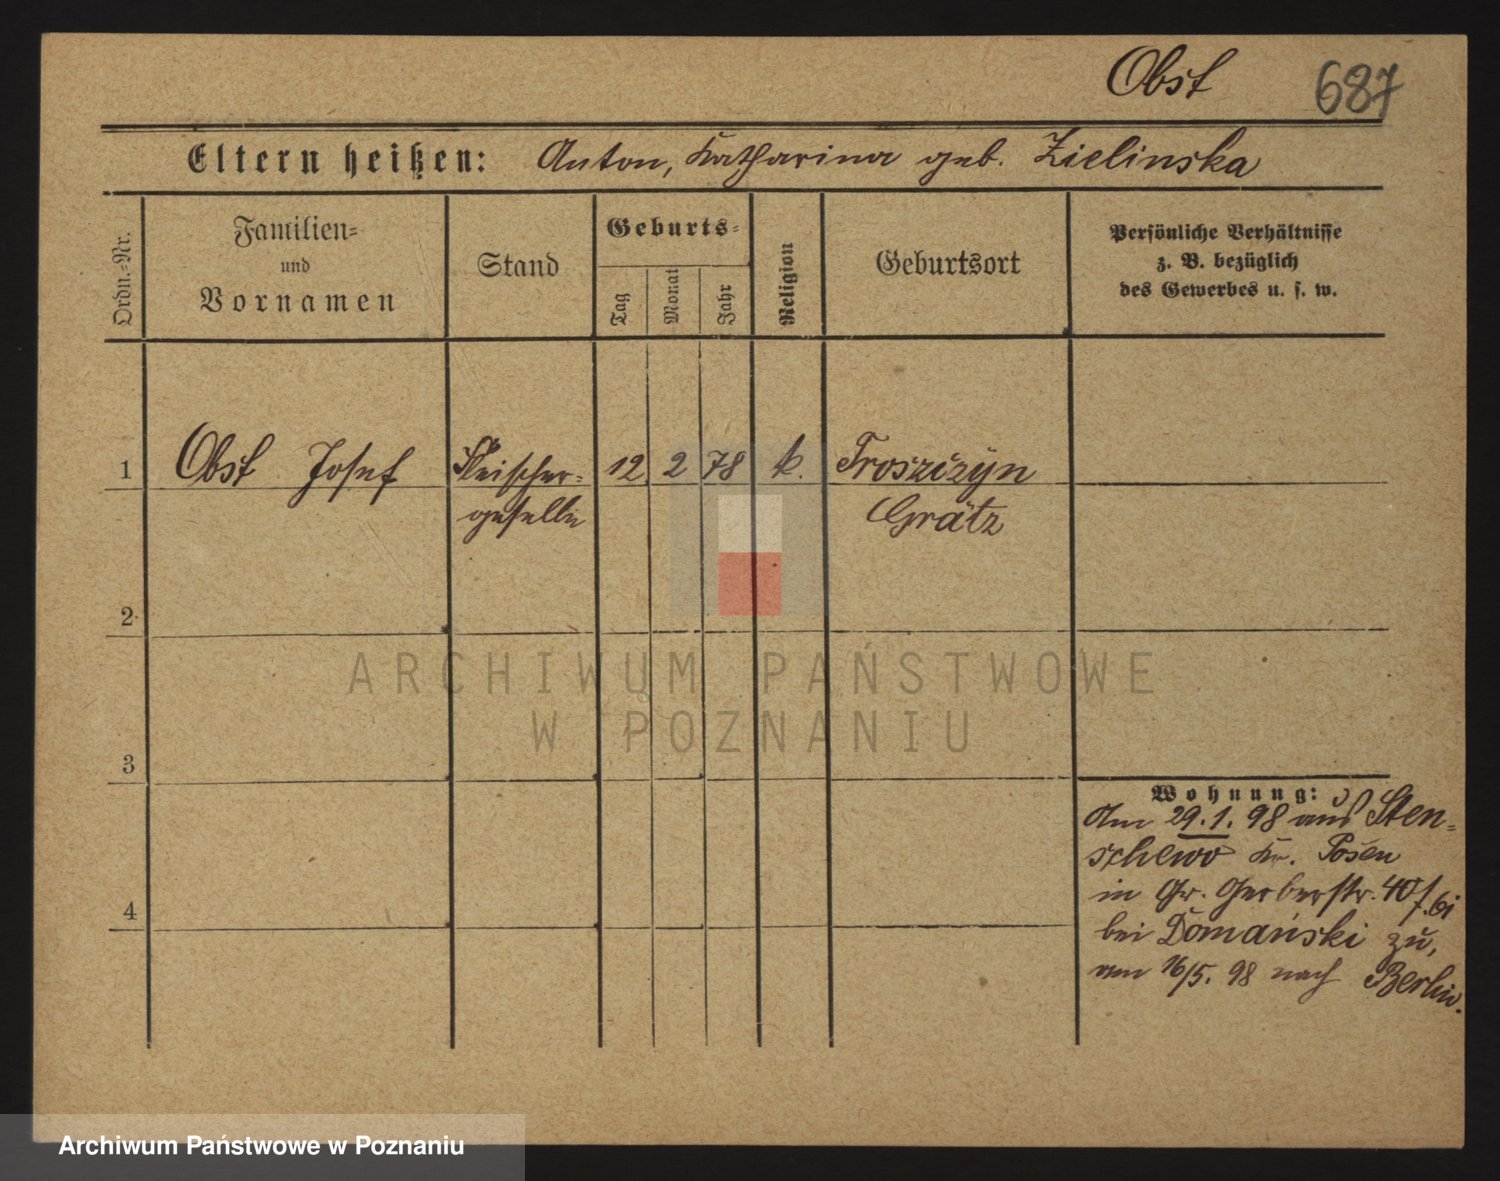 Obst 687
Eltern heißen: Anton, Katharina geb. Zielinska
Ordn.-Nr.
Familien-
und
Vornamen
Stand
Geburts-
Tag
Monat
Jahr
Religion
Geburtsort
Persönliche Verhältnisse
z. B. bezüglich
des Gewerbes u. s. w.
1 Obst Josef Fleischer- 12 2 78 k. Troszizyn
geselle Grätz
2
3
Wohnung:
Am 29.1.98 aus Sten-
schewo Kr. Posen
in Gr. Gerberstr. 40
bei Domański zu,
am 16/5. 98 nach Berlin.
4
ARCHIWUM PAŃSTWOWE
W POZNANIU
Archiwum Państwowe w Poznaniu